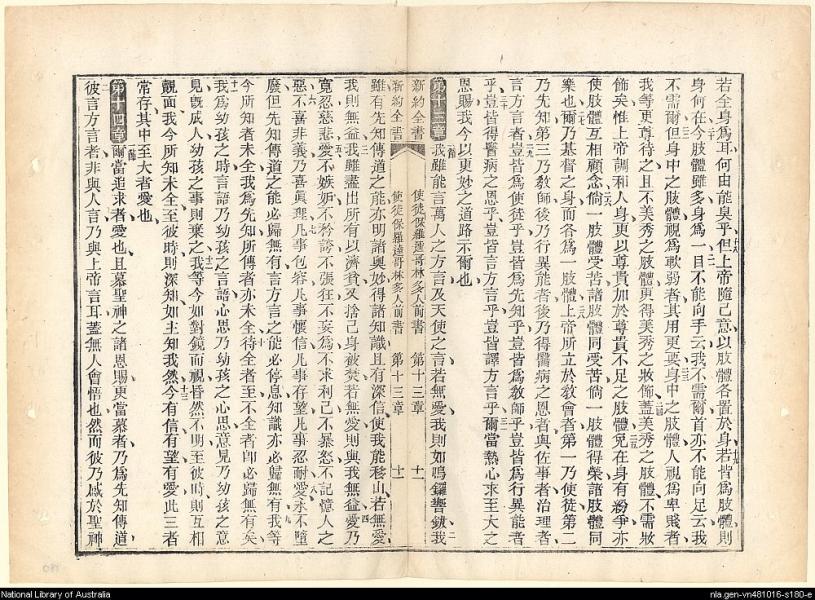 若全身爲耳何由能臭乎但上帝隨己意以肢體各置於身若皆爲肢體則
身何在今肢體雖多身爲一目不能向手云我不需爾首亦不能向足云我
不需爾但身中之肢體視爲軟弱者其用更要身中之肢體人視爲卑賤者
我等更尊待之且不美秀之肢體更得美秀之妝飾蓋美秀之肢體不需妝
飾矣惟上帝調和人身更以尊貴加於尊貴不足之肢體免在身有紛爭亦
使肢體互相顧念倘一肢體受苦諸肢體同受苦倘一肢體得榮諸肢體同
樂也爾乃基督之身而各爲一肢體上帝所立於敎會者第一乃使徒第二
乃先知第三乃敎師後乃行異能者後乃得醫病之恩者與佐事者治理者
言方言者豈皆爲使徒乎豈皆爲先知乎豈皆爲敎師乎豈皆爲行異能者
乎豈皆得醫病之恩乎豈皆言方言乎豈皆譯方言乎爾當熱心求至大之
恩賜我今以更妙之道路示爾也
第十三章 我雖能言萬人之方言及天使之言若無愛我則如鳴鑼響鈸我
新約全書 使徒保羅達哥林多人前書 第十三章 十一
新約全書 使徒保羅達哥林多人前書 第十三章 十一
雖有先知傳道之能亦明諸奧妙得諸知識且有深信使我能移山若無愛
我則無益我雖盡出所有以濟貧又捨己身被焚若無愛則與我無益愛乃
寬忍慈悲愛不嫉妒不矜誇不張狂不妄爲不求利己不暴怒不記憶人之
惡不喜非義乃喜眞理凡事包容凡事懷信凡事存望凡事忍耐愛永不墮
廢但先知傳道之能必歸無有言方言之能必停息知識亦必歸無有我等
今所知者未全我爲先知所傳者亦未全待全者至不全者卽必歸無有矣
我爲幼孩之時言語乃幼孩之言語心思乃幼孩之心思意見乃幼孩之意
見旣成人幼孩之事則棄之我等今如對鏡而視昏然不明至彼時則互相
覿面我今所知未全至彼時則深知如主知我然今有信有望有愛此三者
常存其中至大者愛也
第十四章 爾當追求者愛也且慕聖神之諸恩賜更當慕者乃爲先知傳道
彼言方言者非與人言乃與上帝言耳蓋無人會悟也然而彼乃感於聖神
National Library of Australia
nla.gen-vn481016-s180-e